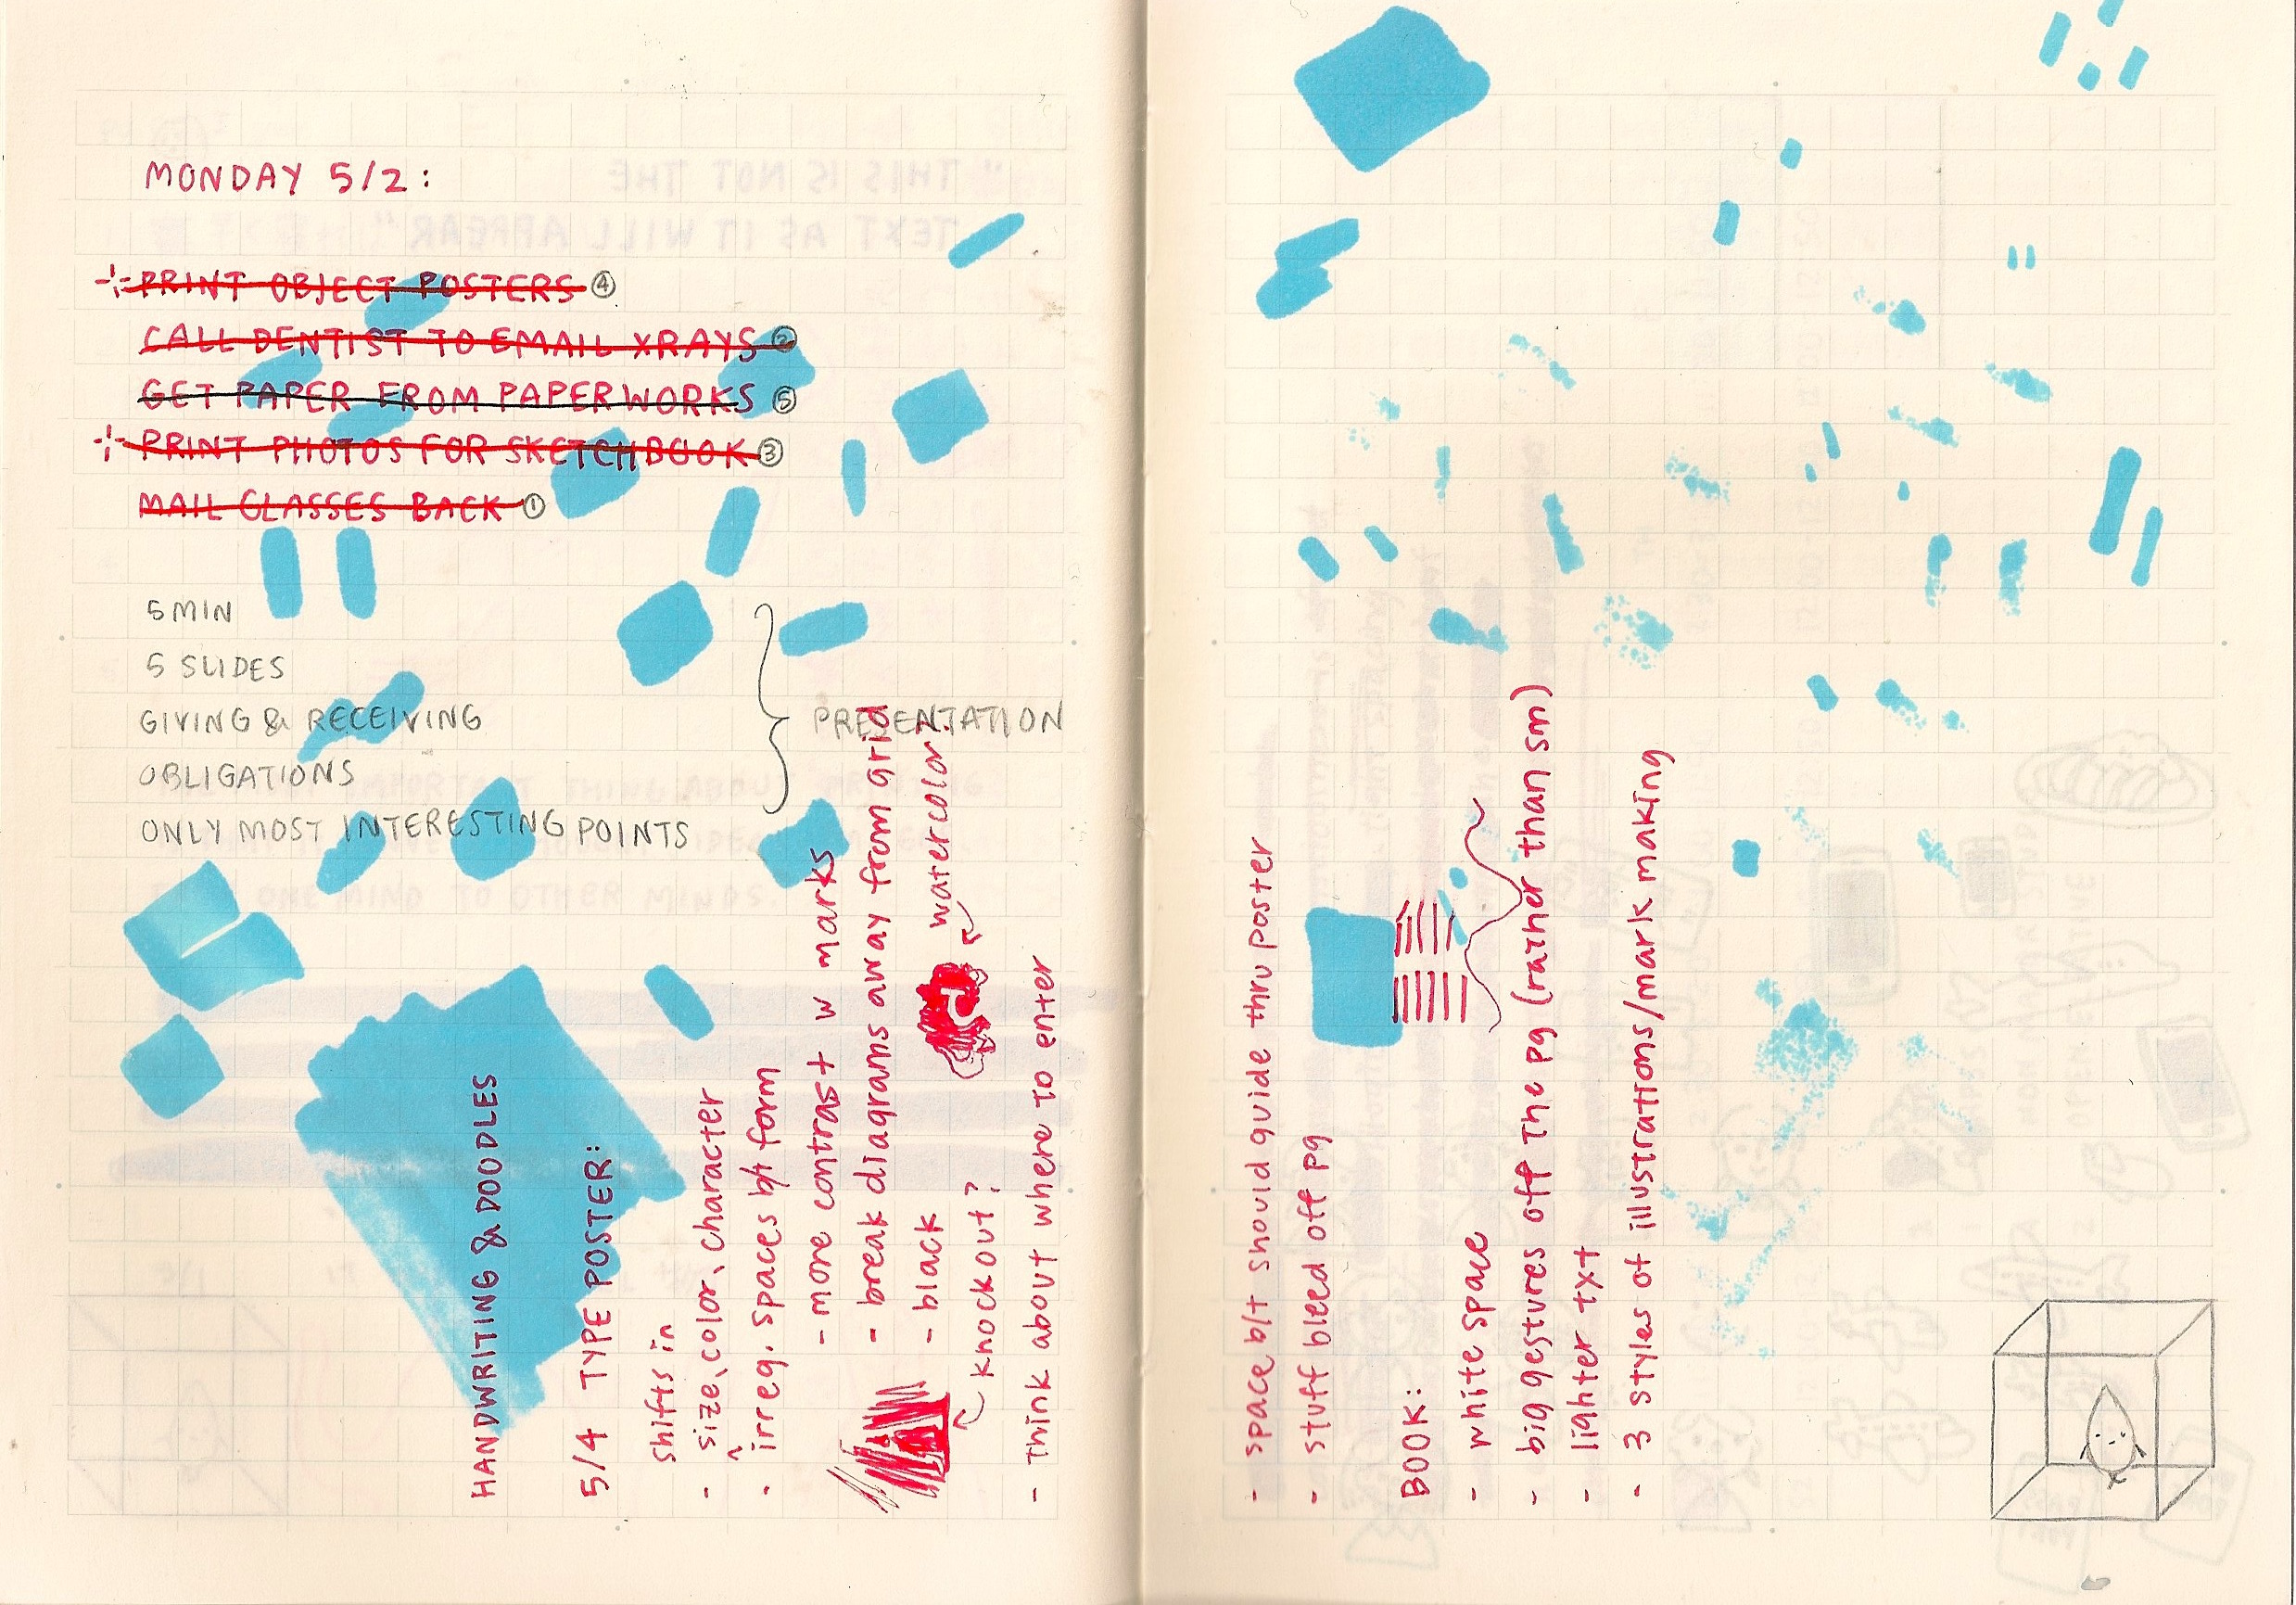 MONDAY 5/2:
PRINT OBJECT POSTERS ④
CALL DENTIST TO EMAIL XRAYS ②
GET PAPER FROM PAPERWORKS ⑤
PRINT PHOTOS FOR SKETCHBOOK ③
MAIL GLASSES BACK ①
5 MIN
5 SLIDES
GIVING & RECEIVING
OBLIGATIONS
ONLY MOST INTERESTING POINTS
PRESENTATION
HANDWRITING & DOODLES
5/4 TYPE POSTER:
shifts in
- size, color, character
- irreg. spaces b/t form
- more contrast w marks
- break diagrams away from grid
- black
watercolor?
knockout?
- think about where to enter
- space b/t should guide thru poster
- stuff bleed off pg
BOOK:
- white space
- big gestures off the pg (rather than sm)
- lighter txt
- 3 styles of illustrations/mark making
"THIS IS NOT THE
TEXT AS IT WILL APPEAR"